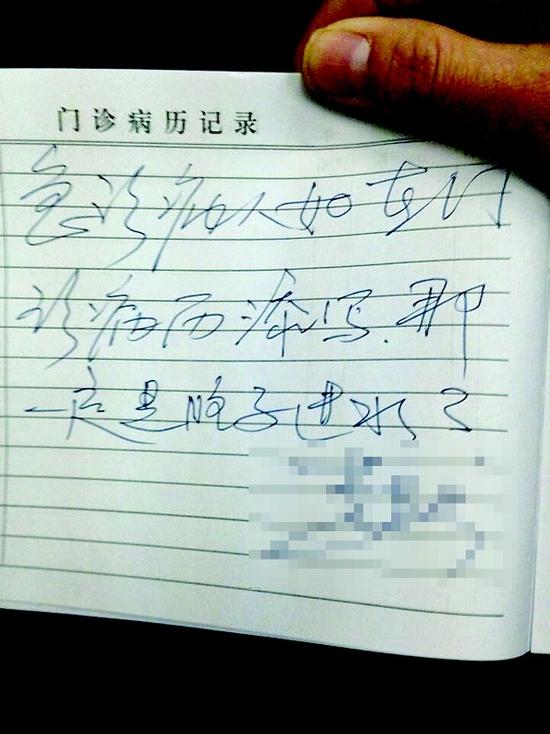 门诊病历记录
急诊病人如在门
诊病历添写.那
一定是脑子进水了